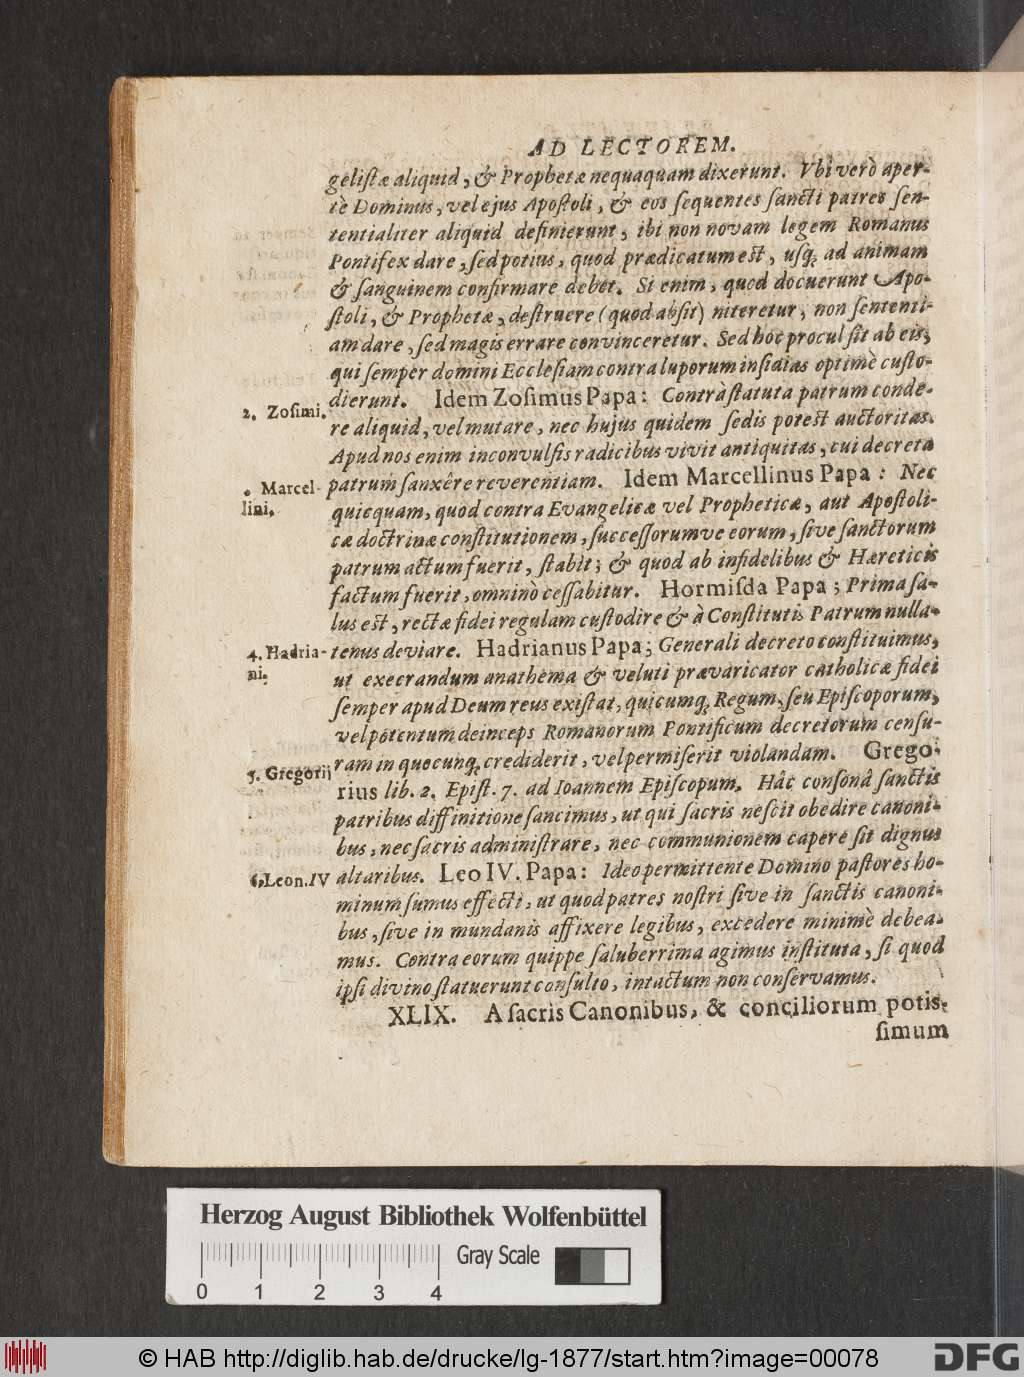 AD LECTOREM.
geliſtæ aliquid, & Prophetæ nequaquam dixerunt. Vbi verò aper-
tè Dominus, vel ejus Apoſtoli, & eos ſequentes ſancti patres ſen-
tentialiter aliquid definierunt, ibi non novam legem Romanus
Pontifex dare, ſed potius, quod prædicatum est, uſq; ad animam
& ſanguinem confirmare debet. Si enim, quod docuerunt Apo-
ſtoli, & Prophetæ, deſtruere (quod abſit) niteretur, non ſententi-
am dare, ſed magis errare convinceretur. Sed hoc procul ſit ab eis,
qui ſemper domini Eccleſiam contra luporum inſidias optimè cuſto-
dierunt. Idem Zoſimus Papa: Contrà ſtatuta patrum conde-
2. Zoſimi.
re aliquid, vel mutare, nec hujus quidem ſedis potest auctoritas.
Apud nos enim inconvulſis radicibus vivit antiquitas, cui decreta
patrum ſanxêre reverentiam. Idem Marcellinus Papa: Nec
. Marcel-
lini.
quicquam, quod contra Evangelicæ vel Propheticæ, aut Apoſtoli-
cæ doctrinæ conſtitutionem, ſucceſſorumve eorum, ſive ſanctorum
patrum actum fuerit, ſtabit; & quod ab infidelibus & Hæreticis
factum fuerit, omninò ceſſabitur. Hormiſda Papa; Prima ſa-
lus est, rectæ fidei regulam cuſtodire & à Conſtitutis Patrum nulla-
tenus deviare. Hadrianus Papa; Generali decreto conſtituimus,
4. Hadria-
ni.
ut execrandum anathema & veluti prævaricator catholicæ fidei
ſemper apud Deum reus exiſtat, quicumq; Regum, ſeu Epiſcoporum,
vel potentum deinceps Romanorum Pontificum decretorum cenſu-
ram in quocunq; crediderit, vel permiſerit violandam. Grego-
5. Gregorij
rius lib. 2. Epiſt. 7. ad Ioannem Epiſcopum. Hâc conſonâ ſanctis
patribus diffinitione ſancimus, ut qui ſacris neſcit obedire canoni-
bus, nec ſacris adminiſtrare, nec communionem capere ſit dignus
altaribus. Leo IV. Papa: Ideo permittente Domino paſtores ho-
6. Leon. IV
minum ſumus effecti, ut quod patres noſtri ſive in ſanctis canoni-
bus, ſive in mundanis affixere legibus, excedere minimè debea-
mus. Contra eorum quippe ſaluberrima agimus inſtituta, ſi quod
ipſi divino ſtatuerunt conſulto, intactum non conſervamus.
XLIX. A ſacris Canonibus, & conciliorum potis-
ſimum
Herzog August Bibliothek Wolfenbüttel
Gray Scale
0 1 2 3 4
© HAB http://diglib.hab.de/drucke/lg-1877/start.htm?image=00078
DFG